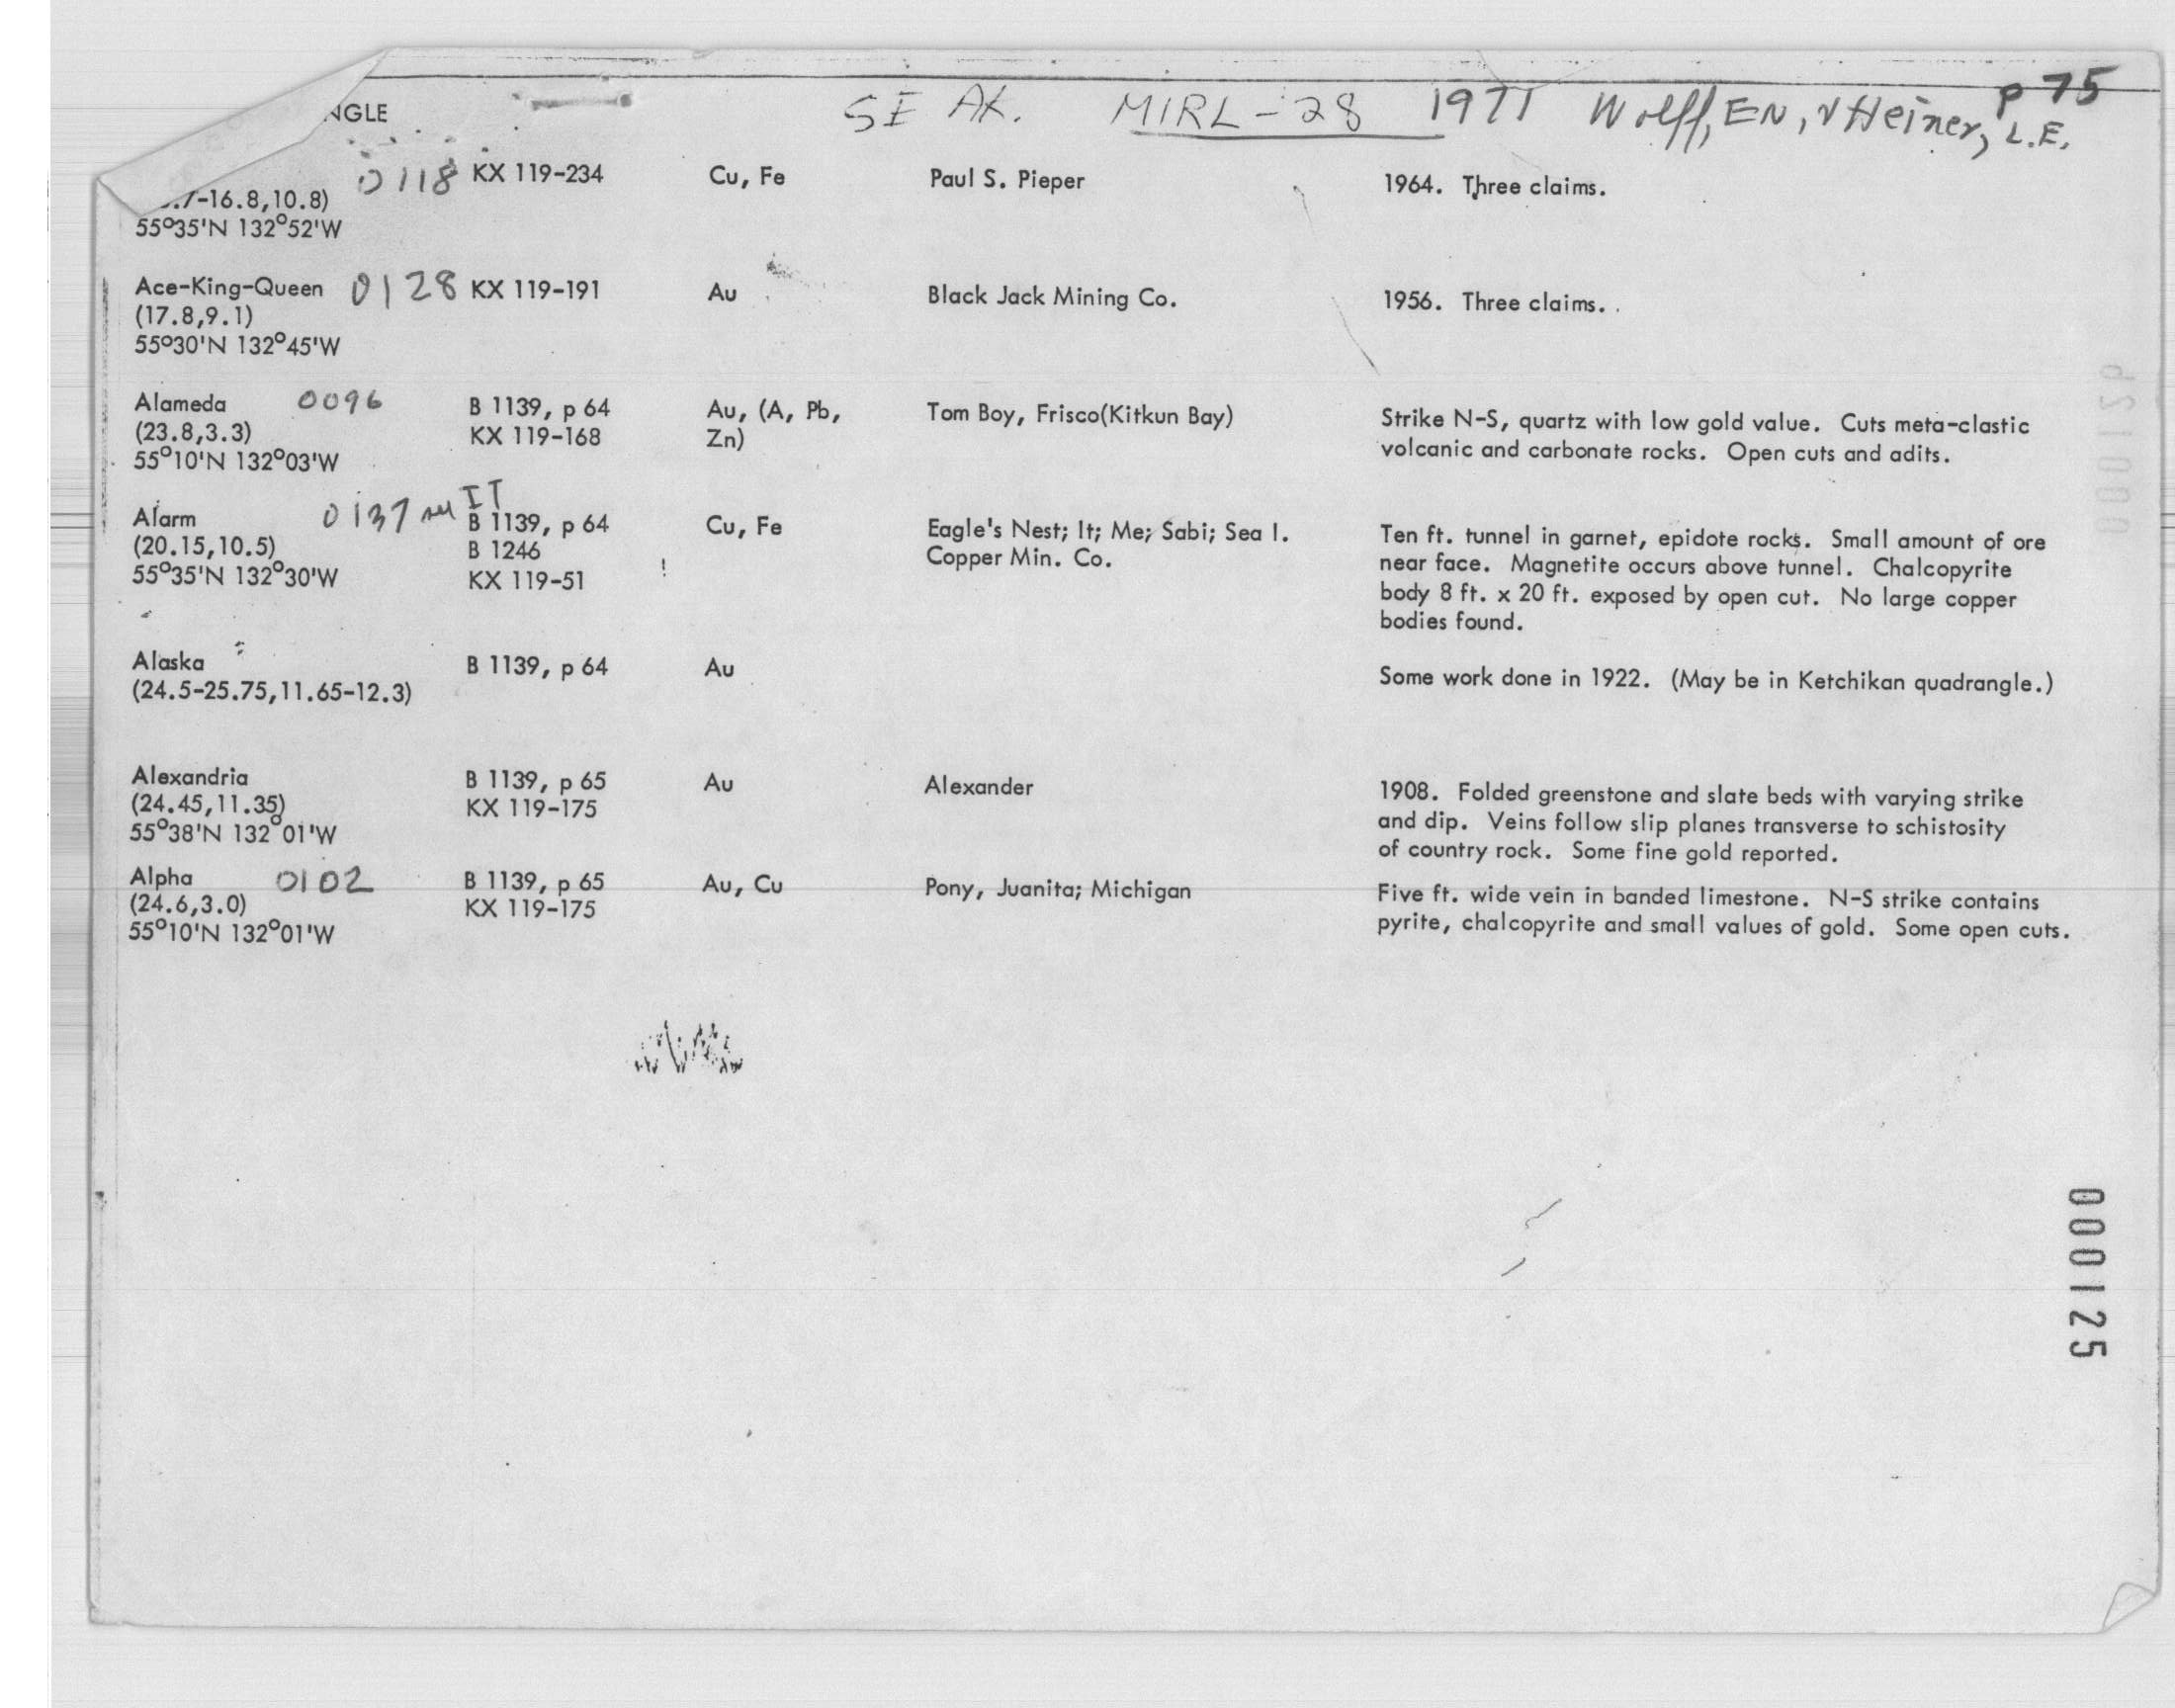 NGLE
SE AK. MIRL-28 1971 Wolff, EN, & Heiner, L.E.
p 75
0118 KX 119-234 Cu, Fe Paul S. Pieper 1964. Three claims.
-16.8,10.8)
55°35'N 132°52'W
Ace-King-Queen 0128 KX 119-191 Au Black Jack Mining Co. 1956. Three claims.
(17.8,9.1)
55°30'N 132°45'W
Alameda 0096 B 1139, p 64 Au, (A, Pb, Tom Boy, Frisco(Kitkun Bay) Strike N-S, quartz with low gold value. Cuts meta-clastic
(23.8,3.3) KX 119-168 Zn) volcanic and carbonate rocks. Open cuts and adits.
55°10'N 132°03'W
IT
Alarm 0137 B 1139, p 64 Cu, Fe Eagle's Nest; It; Me; Sabi; Sea I. Ten ft. tunnel in garnet, epidote rocks. Small amount of ore
(20.15,10.5) B 1246 Copper Min. Co. near face. Magnetite occurs above tunnel. Chalcopyrite
55°35'N 132°30'W KX 119-51 body 8 ft. x 20 ft. exposed by open cut. No large copper
bodies found.
Alaska B 1139, p 64 Au Some work done in 1922. (May be in Ketchikan quadrangle.)
(24.5-25.75,11.65-12.3)
Alexandria B 1139, p 65 Au Alexander 1908. Folded greenstone and slate beds with varying strike
(24.45,11.35) KX 119-175 and dip. Veins follow slip planes transverse to schistosity
55°38'N 132°01'W of country rock. Some fine gold reported.
Alpha 0102 B 1139, p 65 Au, Cu Pony, Juanita; Michigan Five ft. wide vein in banded limestone. N-S strike contains
(24.6,3.0) KX 119-175 pyrite, chalcopyrite and small values of gold. Some open cuts.
55°10'N 132°01'W
000125